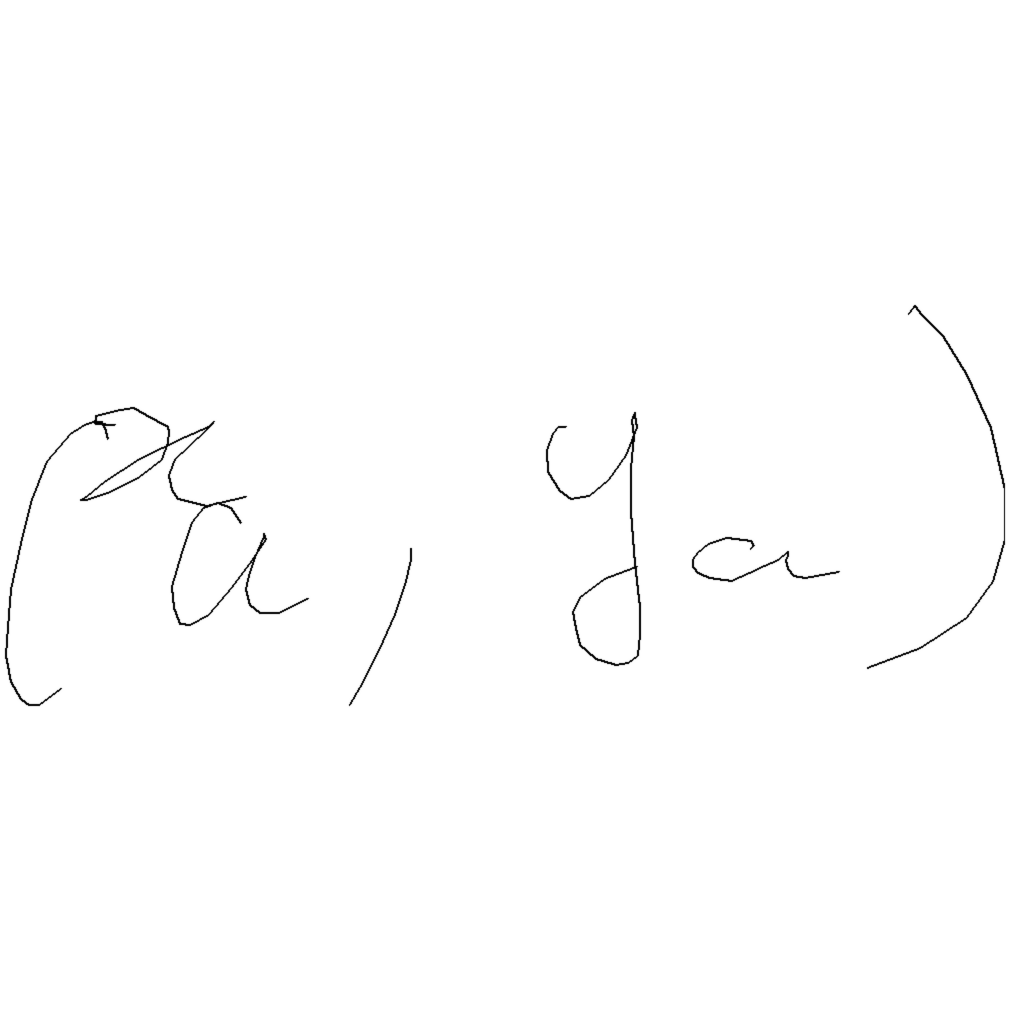 (x_a, y_a)